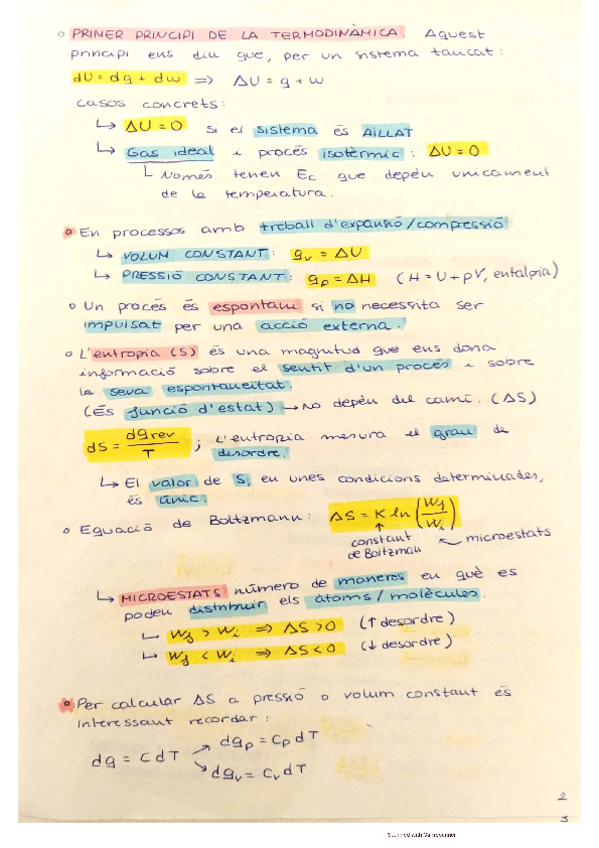 ° PRIMER PRINCIPI DE LA TERMODINÀMICA. Aquest
principi ens diu que, per un sistema tancat:
dU = dq + dw ⇒ ΔU = q + w
casos concrets:
↳ ΔU = 0 si el sistema és AÏLLAT
↳ Gas ideal i procés isotèrmic: ΔU = 0
↳ Només tenen Ec que depèn unicament
de la temperatura.
° En processos amb treball d'expansió/compressió:
↳ VOLUM CONSTANT: qv = ΔU
↳ PRESSIÓ CONSTANT: qp = ΔH (H = U + pV, entalpia)
° Un procés és espontani si no necessita ser
impulsat per una acció externa.
° L'entropia (S) és una magnitud que ens dona
informació sobre el sentit d'un procés i sobre
la seva espontaneïtat.
(És funció d'estat) → No depèn del camí. (ΔS)
dS = dqrev / T ; L'entropia mesura el grau de
desordre.
↳ El valor de S, en unes condicions determinades,
és únic.
° Equació de Boltzmann: ΔS = K ln (Wf / Wi)
↑ constant de Boltzman ↖ microestats
↳ MICROESTATS número de maneres en què es
poden distribuir els àtoms/molècules.
↳ Wf > Wi ⇒ ΔS > 0 (↑ desordre)
↳ Wf < Wi ⇒ ΔS < 0 (↓ desordre)
° Per calcular ΔS a pressió o volum constant és
interessant recordar:
dq = C dT ↗ dqp = Cp dT
↘ dqv = Cv dT
2
3
Scanned with CamScanner